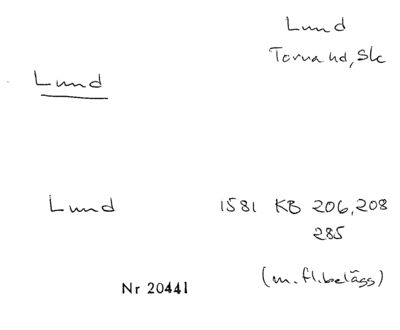 Lund
Torna hd, Sk
Lund
Lund 1581 KB 206, 208
285
(m. fl. belägg)
Nr 20441